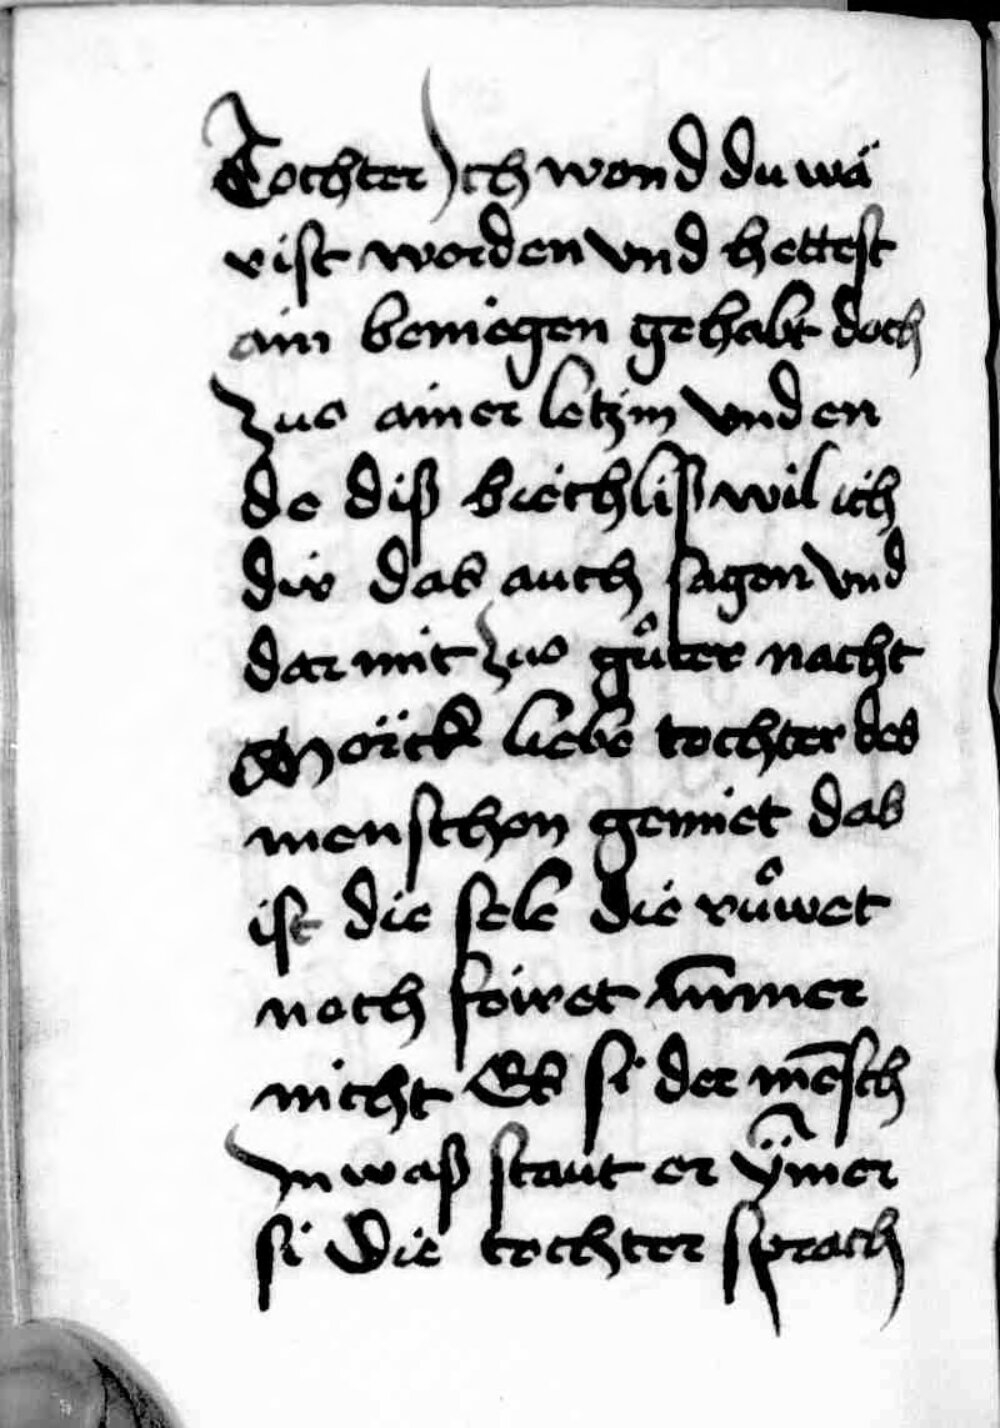 Tochter Ich wond du wä
rist worden vnd hettest
ain beniegen gehabt doch
zuo ainer letzin vnd en
de diß biechliß wil ich
dir das auch sagen vnd
dar mit zuo gůter nacht
Mörck liebe tochter des
menschen gemiet das
ist die sele die růwet
noch feiret nimmer
nicht Es si der mēsch
In waß staut er ÿmer
si Die tochter sprach